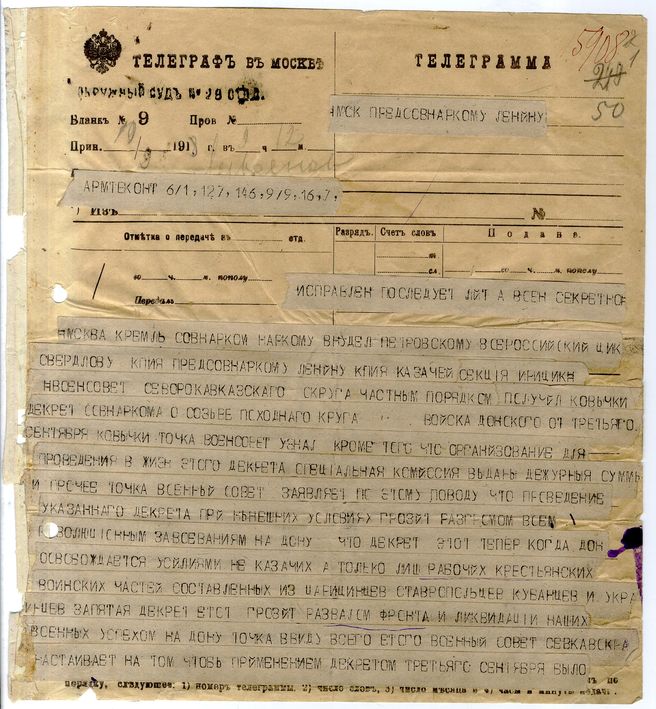 5908 2/1
ТЕЛЕГРАФЪ ВЪ МОСКВѢ
ТЕЛЕГРАММА
248
ОКРУЖНЫЙ СУДЪ №
50
Бланкъ № 9 Пров №
НМСК ПРЕДСОВНАРКОМУ ЛЕНИНУ
Прин. 191 г. въ ч. м.
АРМТЕКОНТ 6/1, 127, 146, 9/9, 16, 7,
ИЗЪ
№
Отмѣтка о передачѣ въ отд.
Разрядъ. Счетъ словъ Подана.
го ч. м. пополу
сл. го ч. м. пополу
Передалъ
ИСПРАВЛЕН ПОСЛЕДУЕТ ЛИТ А ВСЕН СЕКРЕТНО
НМСКВА КРЕМЛЬ СОВНАРКОМ НАРКОМУ ВНУДЕЛ ПЕТРОВСКОМУ ВСЕРОССИЙСКИЙ ЦИК
СВЕРДЛОВУ КПИЯ ПРЕДСОВНАРКОМУ ЛЕНИНУ КПИЯ КАЗАЧЕЙ СЕКЦІЯ
НВОЕНСОВЕТ СЕВОРОКАВКАЗСКАГО ОКРУГА ЧАСТНЫМ ПОРЯДКОМ ПОЛУЧИЛ КОВЫЧКИ
ДЕКРЕТ СОВНАРКОМА О СОЗЬВЕ ПОХОДНАГО КРУГА ВОЙСКА ДОНСКОГО ОТ ТРЕТЬЯГО
СЕНТЯБРЯ КОВЫЧКИ ТОЧКА ВОЕНСОВЕТ УЗНАЛ КРОМЕ ТОГО ЧТО ОРГАНИЗОВАНИЕ ДЛЯ
ПРОВЕДЕНИЯ В ЖИЗН ЕТОГО ДЕКРЕТА СПЕЦІАЛЬНАЯ КОМИССИЯ ВЫДАНЫ ДЕЖУРНЫЯ СУММЫ
И ПРОЧЕЕ ТОЧКА ВОЕННЫЙ СОВЕТ ЗАЯВЛЯЕТ ПО ЭТОМУ ПОВОДУ ЧТО ПРОВЕДЕНИЕ
УКАЗАННАГО ДЕКРЕТА ПРИ НЫНЕШНИХ УСЛОВИЯХ ГРОЗИТ РАЗГРОМОМ ВСЕМ
РЕВОЛЮЦІОННЫМ ЗАВОЕВАНИЯМ НА ДОНУ ЧТО ДЕКРЕТ ЭТОТ ТЕПЕР КОГДА ДОН
ОСВОБОЖДАЕТСЯ УСИЛИЯМИ НЕ КАЗАЧИХ А ТОЛЬКО ЛИШ РАБОЧИХ КРЕСТЬЯНСКИХ
ВОИНСКИХ ЧАСТЕЙ СОСТАВЛЕННЫХ ИЗ ЦАРИЦИНЦЕВ СТАВРОПОЛЬЦЕВ КУБАНЦЕВ И УКРА
ИНЦЕВ ЗАПЯТАЯ ДЕКРЕТ ЕТОТ ГРОЗИТ РАЗВАЛОМ ФРОНТА И ЛИКВИДАЦІИ НАШИХ
ВОЕННЫХ УСПЕХОМ НА ДОНУ ТОЧКА ВВИДУ ВСЕГО ЕТОГО ВОЕННЫЙ СОВЕТ СЕВКАВОКРА
НАСТАИВАЕТ НА ТОМ ЧТОБЬ ПРИМЕНЕНИЕМ ДЕКРЕТОМ ТРЕТЬЯГО СЕНТЯБРЯ БЫЛО
ъ по
порядку, слѣдующее: 1) номеръ телеграммы. 2) число словъ, 3) число мѣсяца и 4) часы и минуты подачи.